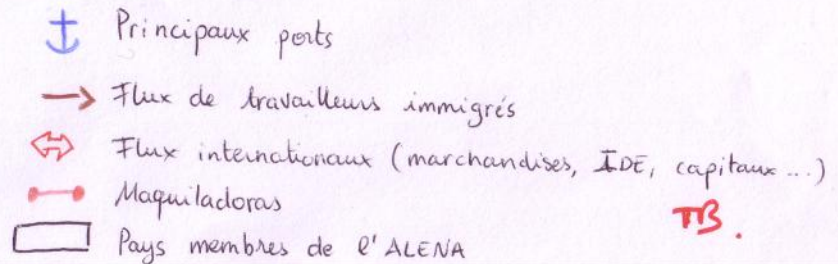 Principaux ports
Flux de travailleurs immigrés
Flux internationaux (marchandises, IDE, capitaux ...)
Maquiladoras
TB.
Pays membres de l'ALENA